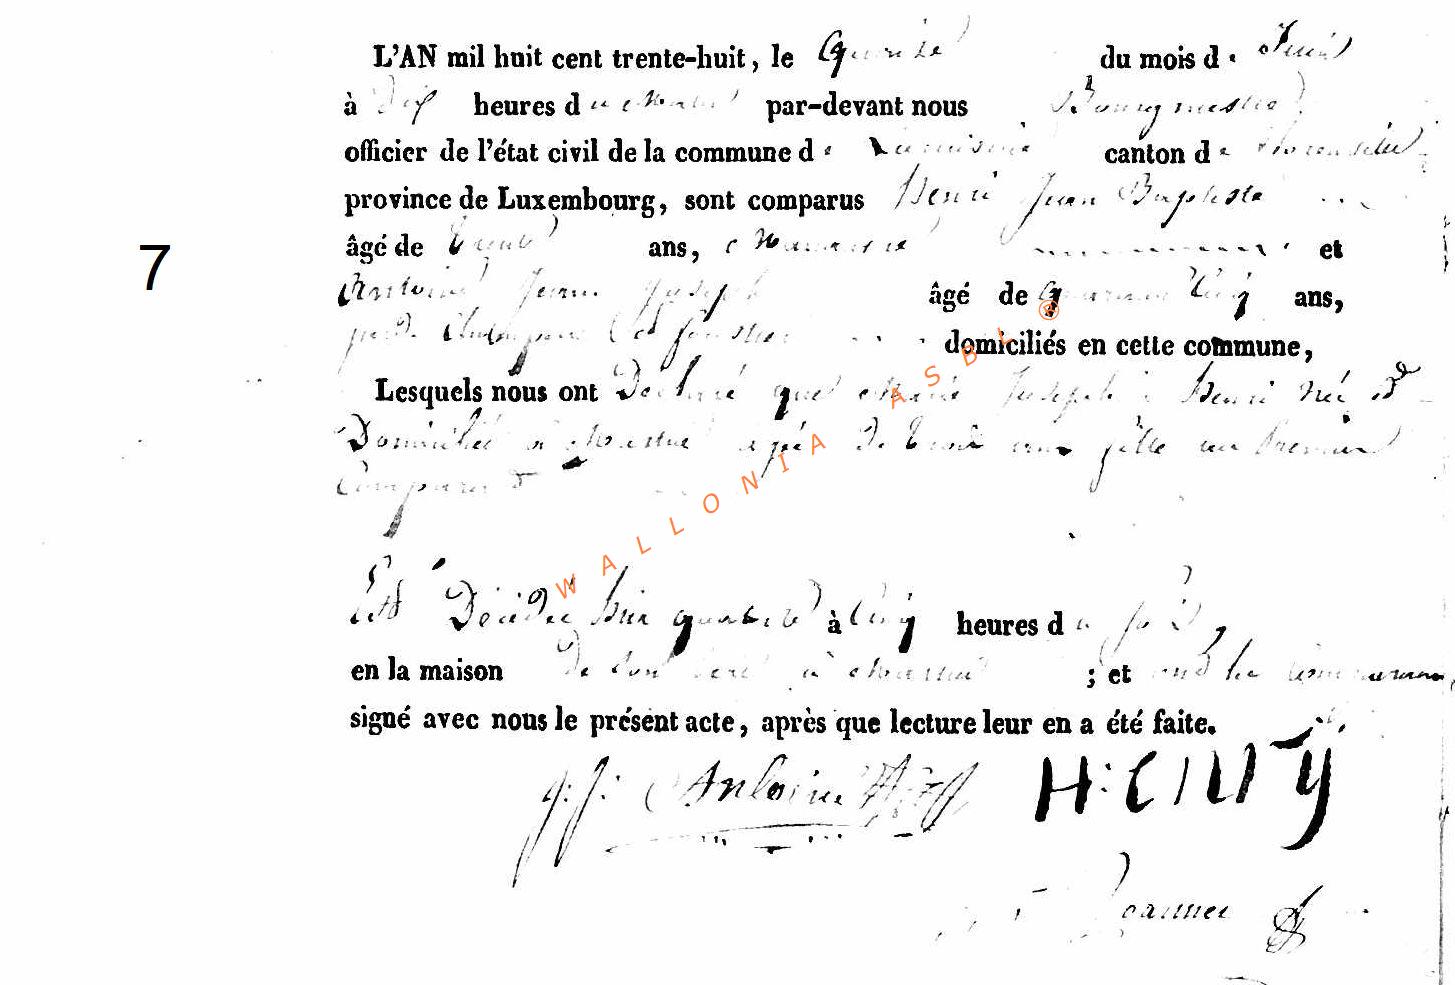 L'AN mil huit cent trente-huit, le Quinze du mois de Juin
à Dix heures du Matin par-devant nous Bourgmestre
officier de l'état civil de la commune de canton de
province de Luxembourg, sont comparus Henri Jean Baptiste
âgé de Trente ans, et
7
Antoine Jean Joseph âgé de quarante Cinq ans,
domiciliés en cette commune,
Lesquels nous ont Déclaré que Marie Joseph Henri Née et
Domiciliée à agée De trois ans fille au Premier
Comparant
Est Décédée hier quatorze à Cinq heures du soir,
en la maison De Son père à ; et ont les Comparans
signé avec nous le présent acte, après que lecture leur en a été faite.
J: J: Antoine H:ENRY
Jeanner
WALLONIA ASBL ®